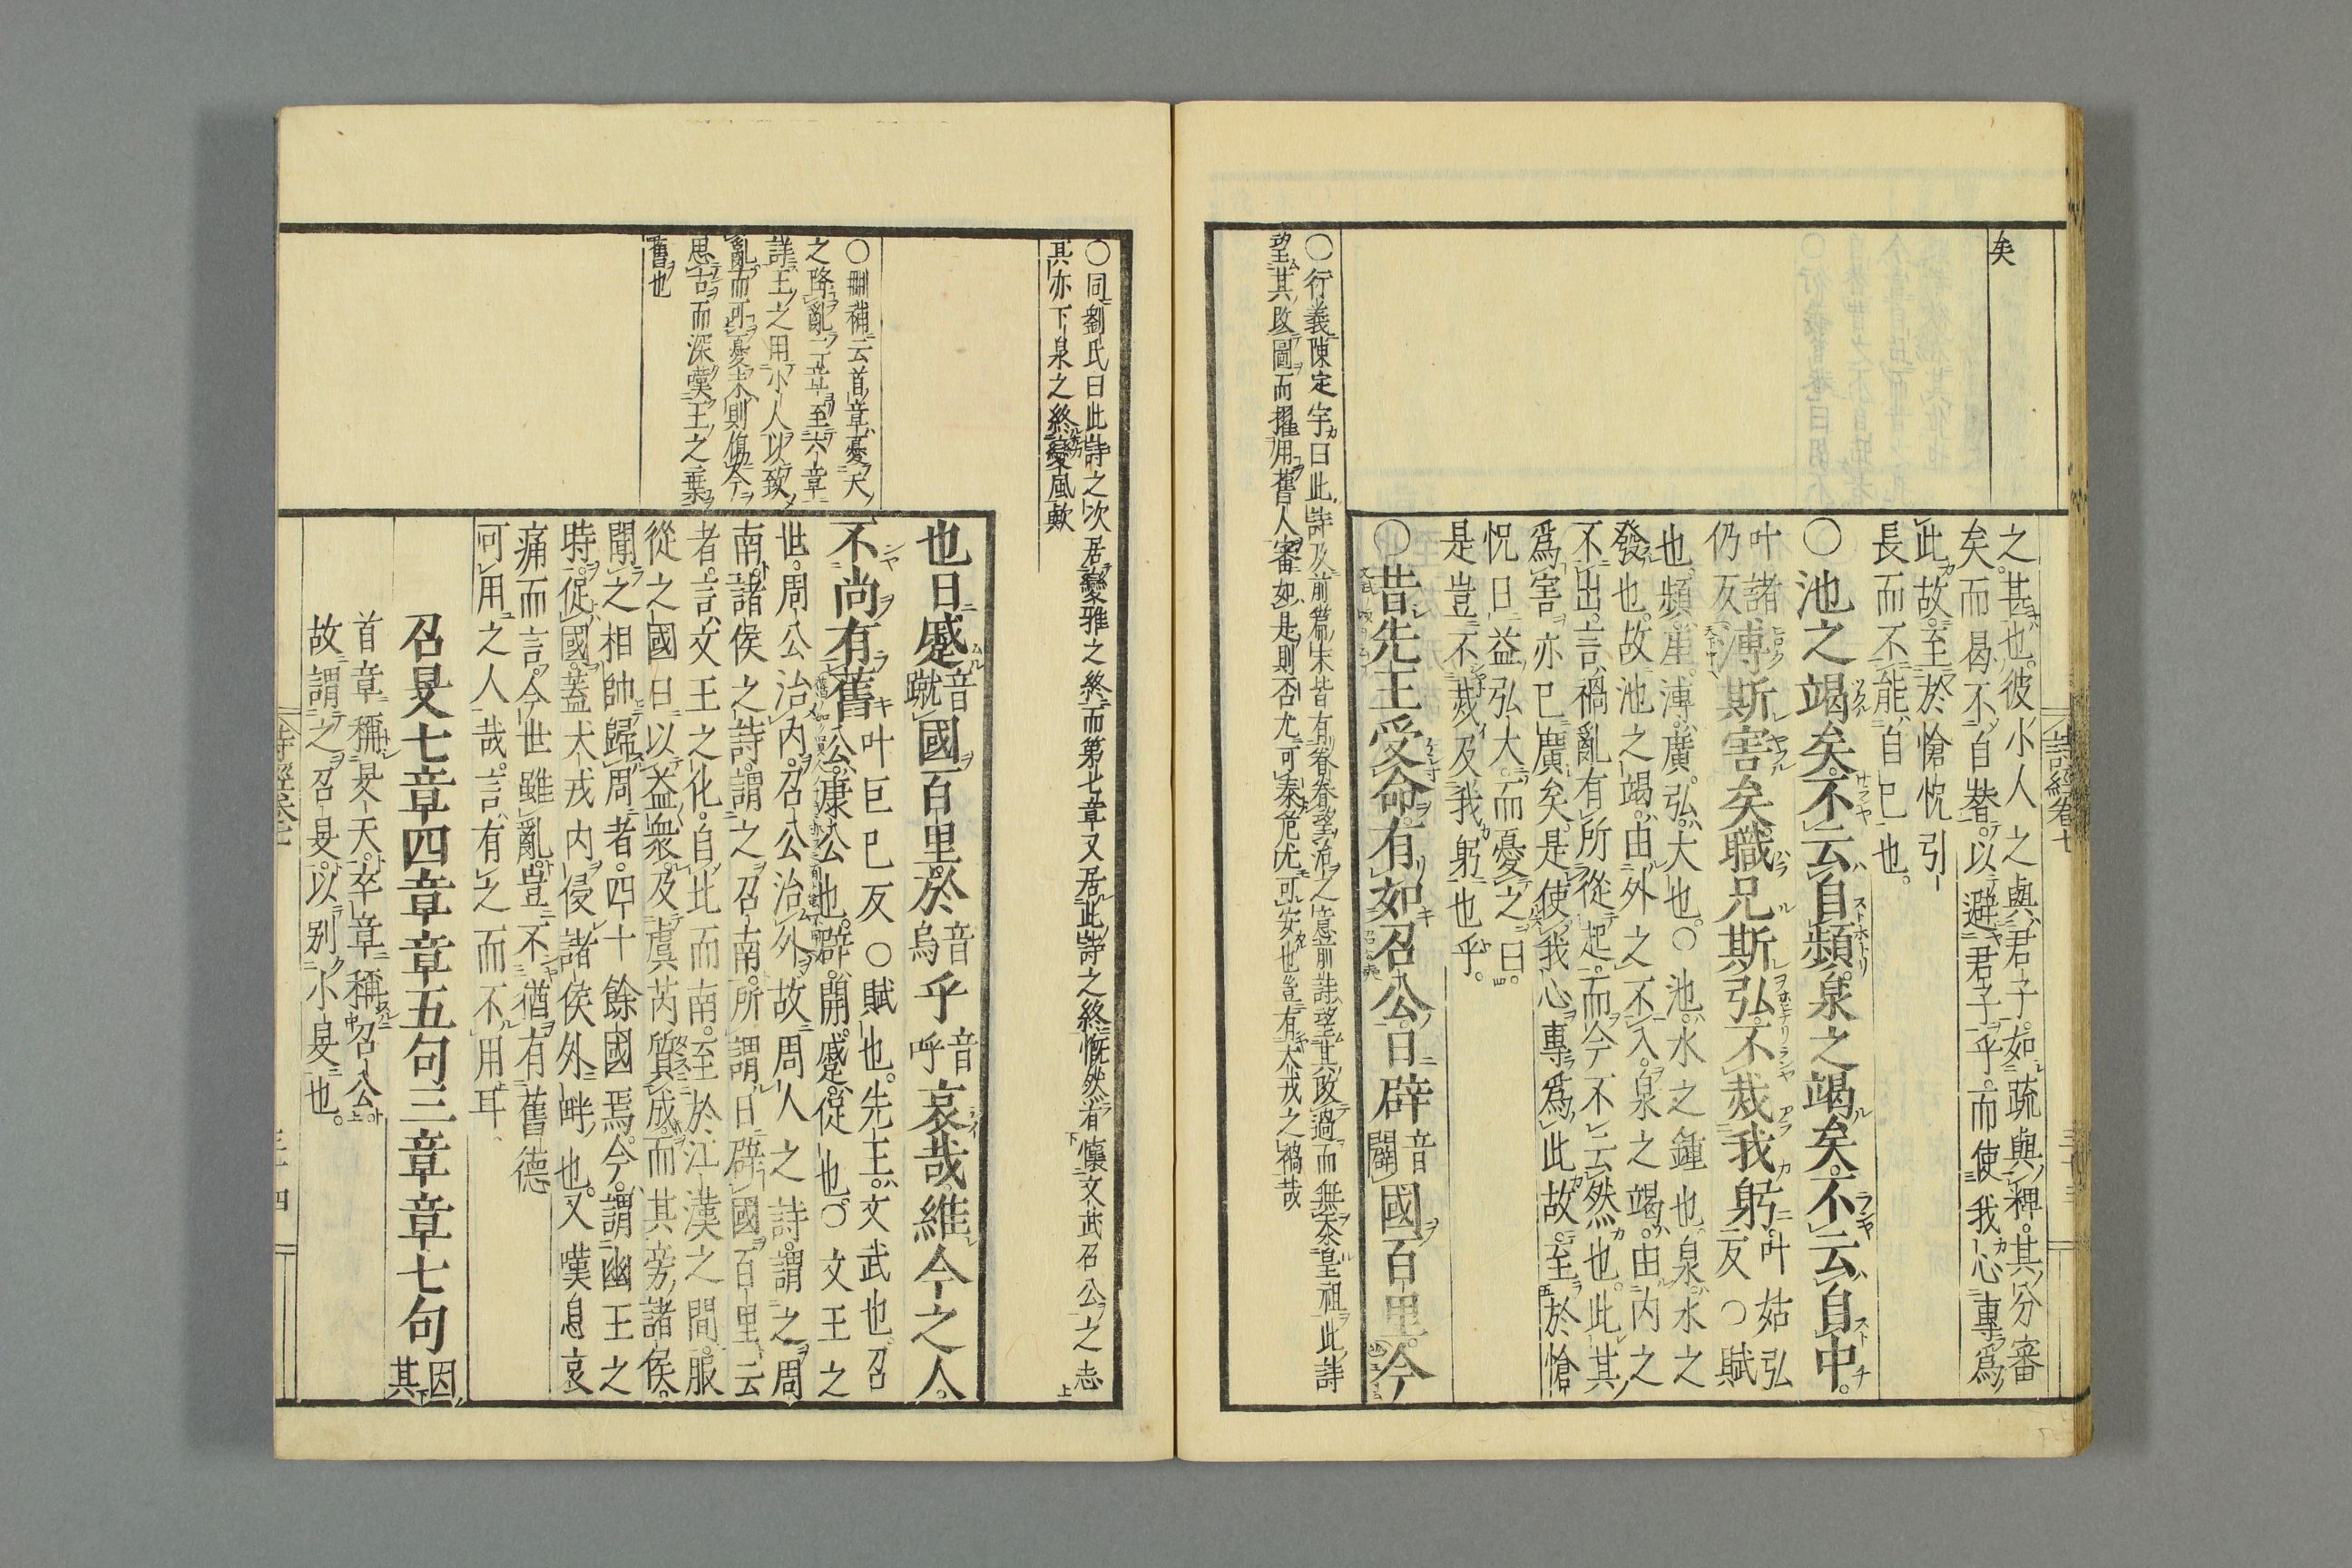 詩經卷七
矣
之甚也彼小人之與君子如疏與稗其分審
矣而曷不自替以避君子乎而使我心專爲
此故至於愴怳引
長而不能自已也
〇池之竭矣不云自頻泉之竭矣不云自中
叶諸仍反溥斯害矣職兄斯弘不烖我躬叶姑弘反〇賦
也頻厓溥廣弘大也〇池水之鍾也泉水之
發也故池之竭由外之不入泉之竭由内之
不出言禍亂有所從起而今不云然也此其
爲害亦已廣矣是使我心專爲此故至於愴
怳日益弘大而憂之曰
是豈不烖及我躬也乎
〇昔先王受命有如召公日辟音闢國百里今
〇行義陳定宇曰此詩及前篇末皆有眷眷望治之意前詩望其改過而無忝皇祖此詩
望其改圖而擢用舊人審如是則否尤可泰危尤可安也豈有犬戎之禍哉
〇同劉氏曰此詩之次居變雅之終而第七章又居此詩之終慨然有懷文武召公之志
其亦下泉之終變風歟
也日蹙音蹴國百里於音烏乎音呼哀哉維今之人
不尚有舊叶巨已反〇賦也先王文武也召
公康公也辟開蹙促也〇文王之
世周公治内召公治外故周人之詩謂之周
南諸侯之詩謂之召南所謂日辟國百里云
者言文王之化自北而南至於江漢之間服
從之國日以益衆及虞芮質成而其旁諸侯
聞之相帥歸周者四十餘國焉今謂幽王之
時促國蓋犬戎内侵諸侯外畔也又嘆息哀
痛而言今世雖亂豈不猶有舊德
可用之人哉言有之而不用耳
〇刪補云首章憂天
之降亂二章至六章
詳王之用小人以致
亂而可憂末則傷今
思古而深嘆王之棄
舊也
召旻七章四章章五句三章章七句因其
首章稱旻天卒章稱召公
故謂之召旻以别小旻也